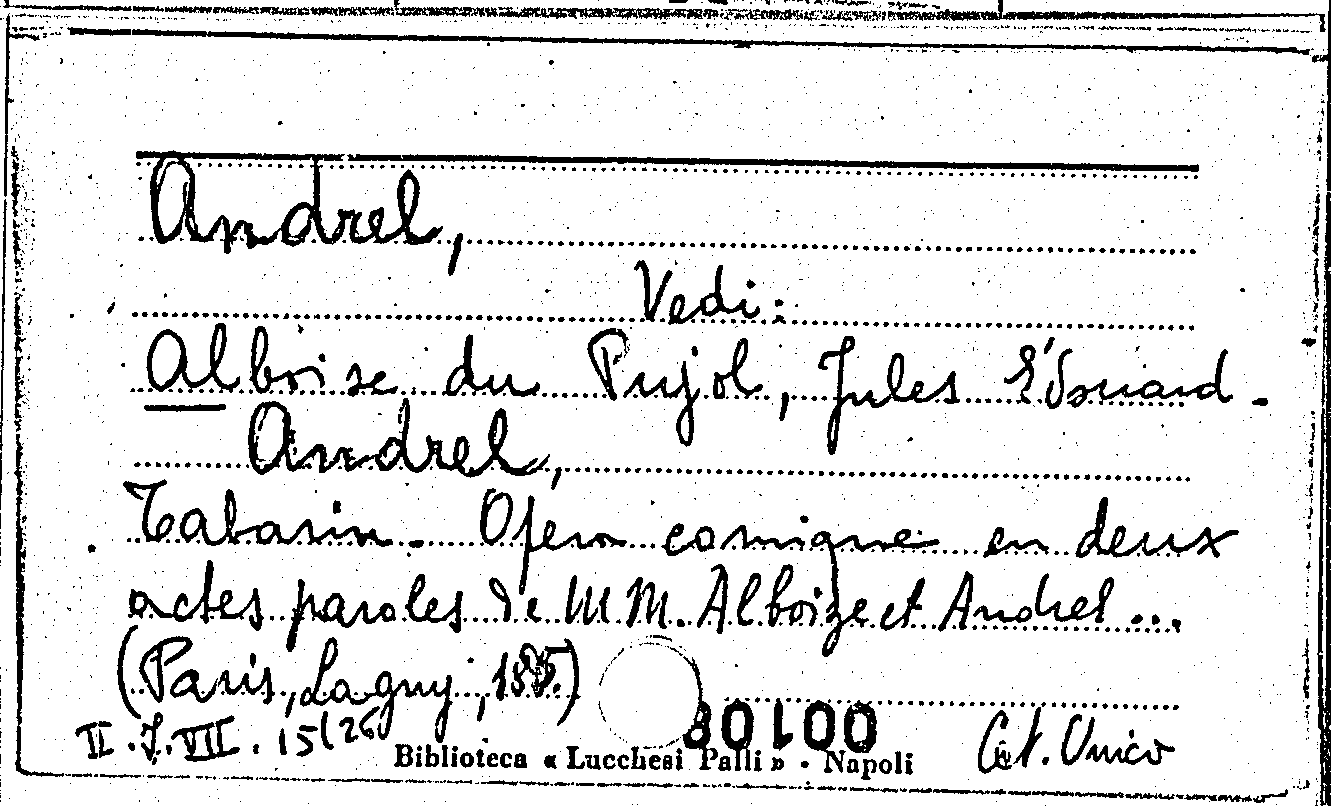 Andrel,
Vedi:
Alboise du Pujol, Jules Édouard -
Andrel,
Tabarin. Opera comique en deux
actes paroles de M M. Alboize et Andrel ...
(Paris, Lagny,
II. J. VII. 15(26
00108
Biblioteca « Lucchesi Palli » - Napoli
Cat. Unico